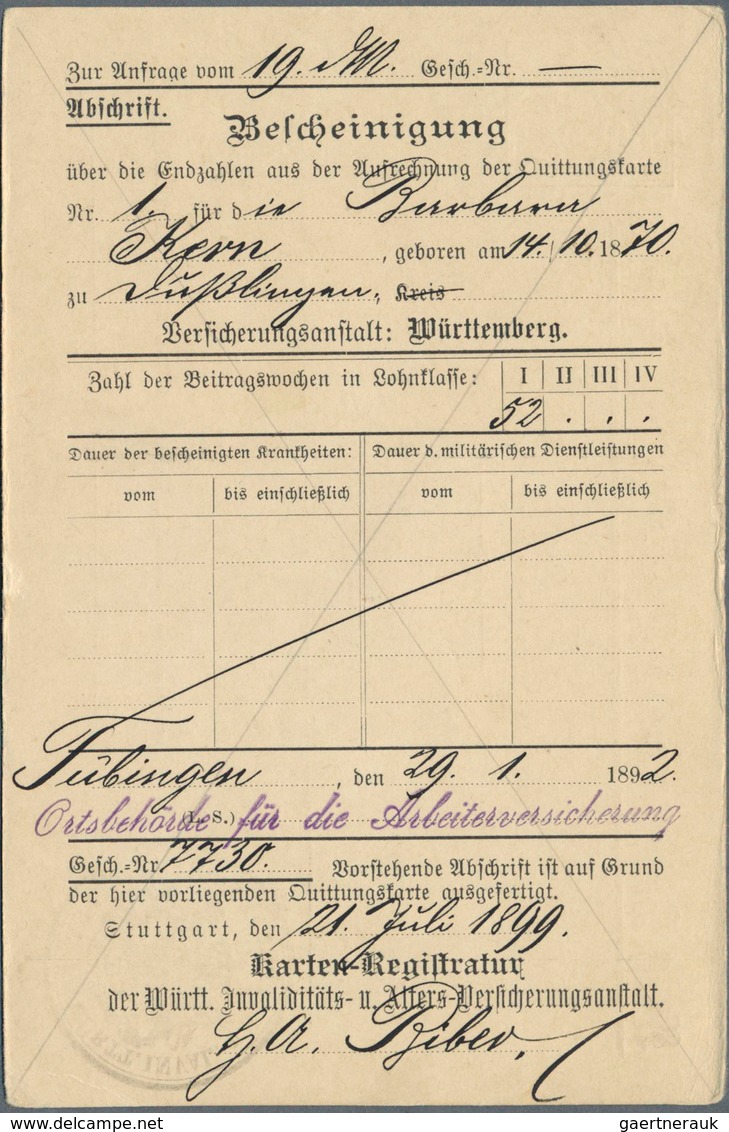 Zur Anfrage vom 19. d.M. Gesch.=Nr. —
Abschrift.
Bescheinigung
über die Endzahlen aus der Aufrechnung der Quittungskarte
Nr. 1. für die Barbara
Kern, geboren am 14. 10. 1870.
zu Dußlingen, Kreis
Versicherungsanstalt: Württemberg.
Zahl der Beitragswochen in Lohnklasse: I II III IV
52 . . .
Dauer der bescheinigten Krankheiten: Dauer d. militärischen Dienstleistungen
vom bis einschließlich vom bis einschließlich
Tübingen, den 29. 1. 1892.
(L. S.)
Ortsbehörde für die Arbeiterversicherung
Gesch.=Nr. 7730. Vorstehende Abschrift ist auf Grund
der hier vorliegenden Quittungskarte ausgefertigt.
Stuttgart, den 21. Juli 1899.
Karten-Registratur
der Württ. Invaliditäts- u. Alters-Versicherungsanstalt.
H. A. Biber,
gaertnerauk